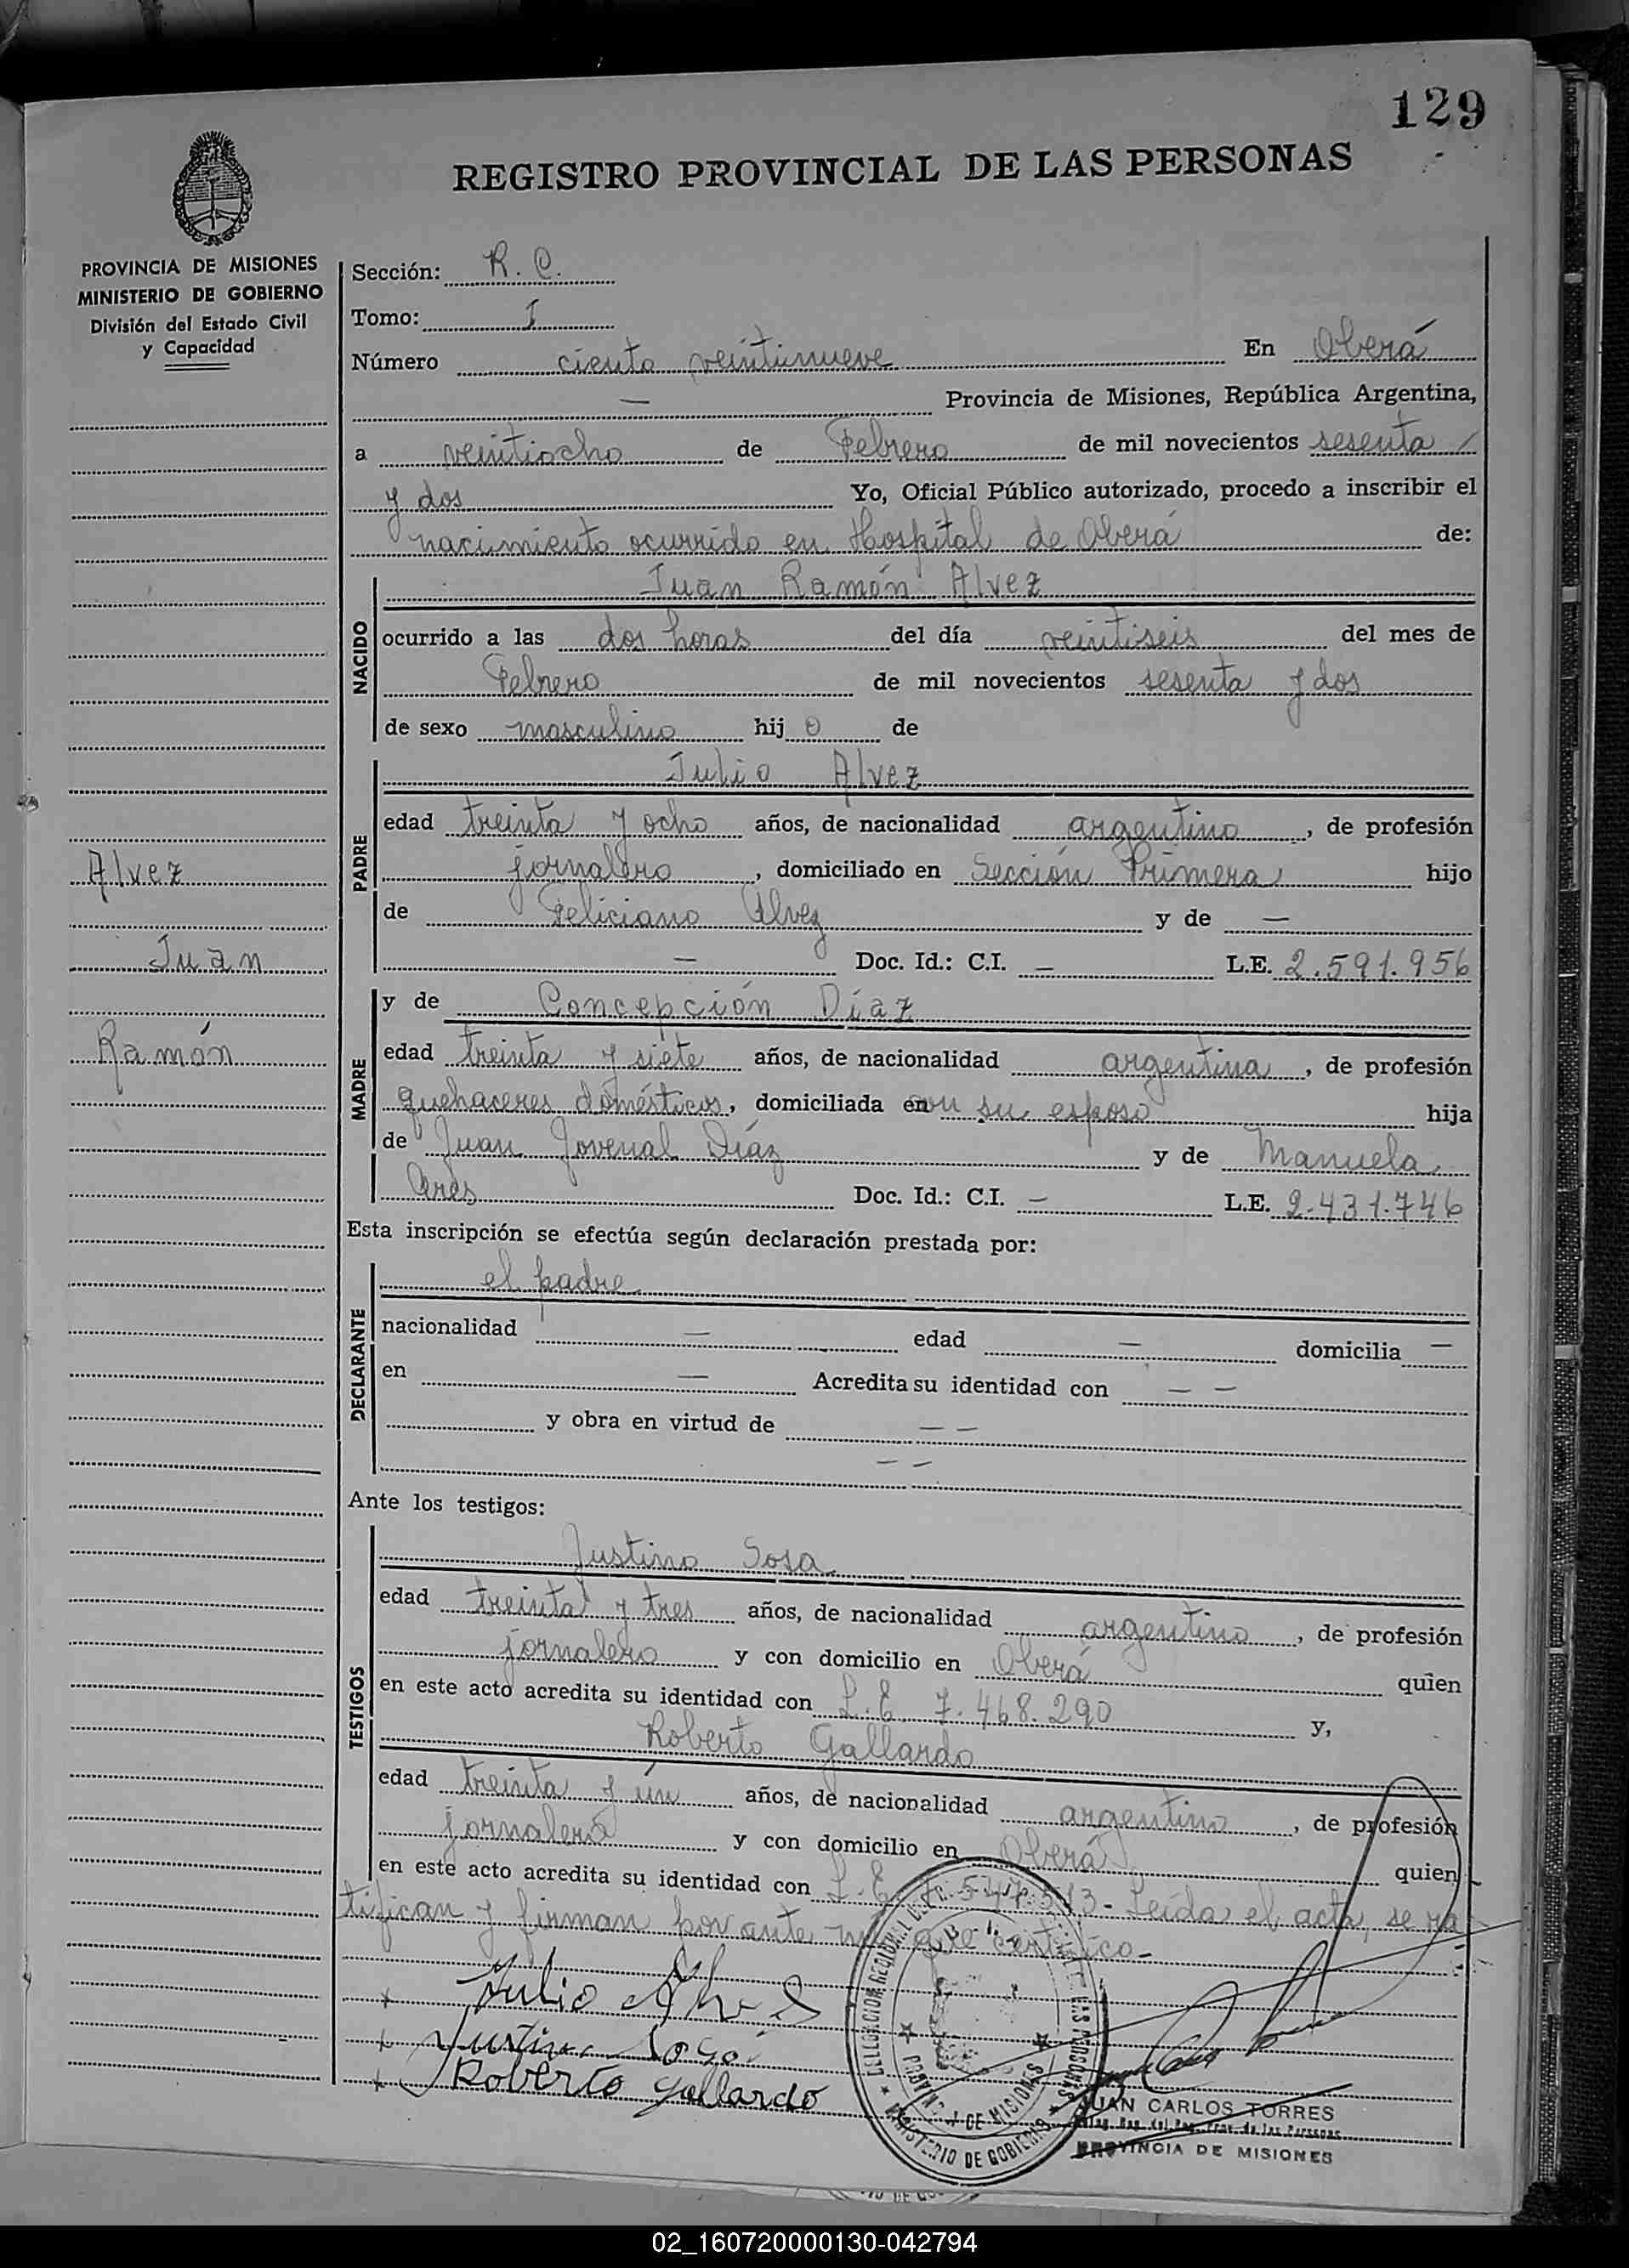 129
REGISTRO PROVINCIAL DE LAS PERSONAS
PROVINCIA DE MISIONES
MINISTERIO DE GOBIERNO
División del Estado Civil
y Capacidad
Sección: R. C.
Tomo: I
Número ciento veintinueve En Oberá
— Provincia de Misiones, República Argentina,
a veintiocho de Febrero de mil novecientos sesenta /
y dos Yo, Oficial Público autorizado, procedo a inscribir el
nacimiento ocurrido en Hospital de Oberá de:
NACIDO
Juan Ramón Alvez
ocurrido a las dos horas del día veintiseis del mes de
Febrero de mil novecientos sesenta y dos
de sexo masculino hij o de
PADRE
Julio Alvez
edad treinta y ocho años, de nacionalidad argentino, de profesión
jornalero, domiciliado en Sección Primera hijo
de Feliciano Alvez y de —
— Doc. Id.: C.I. — L.E. 2.591.956
Alvez
Juan
Ramón
MADRE
y de Concepción Díaz
edad treinta y siete años, de nacionalidad argentina, de profesión
quehaceres domésticos, domiciliada en su esposo hija
de Juan Jovenal Díaz y de Manuela
Ares Doc. Id.: C.I. — L.E. 2.431.746
Esta inscripción se efectúa según declaración prestada por:
DECLARANTE
el padre
nacionalidad — edad — domicilia —
en — Acredita su identidad con — —
y obra en virtud de — —
— —
Ante los testigos:
TESTIGOS
Justino Sosa
edad treinta y tres años, de nacionalidad argentino, de profesión
jornalero y con domicilio en Oberá quien
en este acto acredita su identidad con L.E 7.468.290 y,
Roberto Gallardo
edad treinta y ún años, de nacionalidad argentino, de profesión
jornalero y con domicilio en Oberá quien
en este acto acredita su identidad con L.E. - Leída el acta, se ra
tifican y firman por ante mí que certifico-
+ Julio Alves
+ Justino Sosa
+ Roberto Gallardo
PROVINCIA DE MISIONES
MINISTERIO DE GOBIERNO
JUAN CARLOS TORRES
PROVINCIA DE MISIONES
02_160720000130-042794